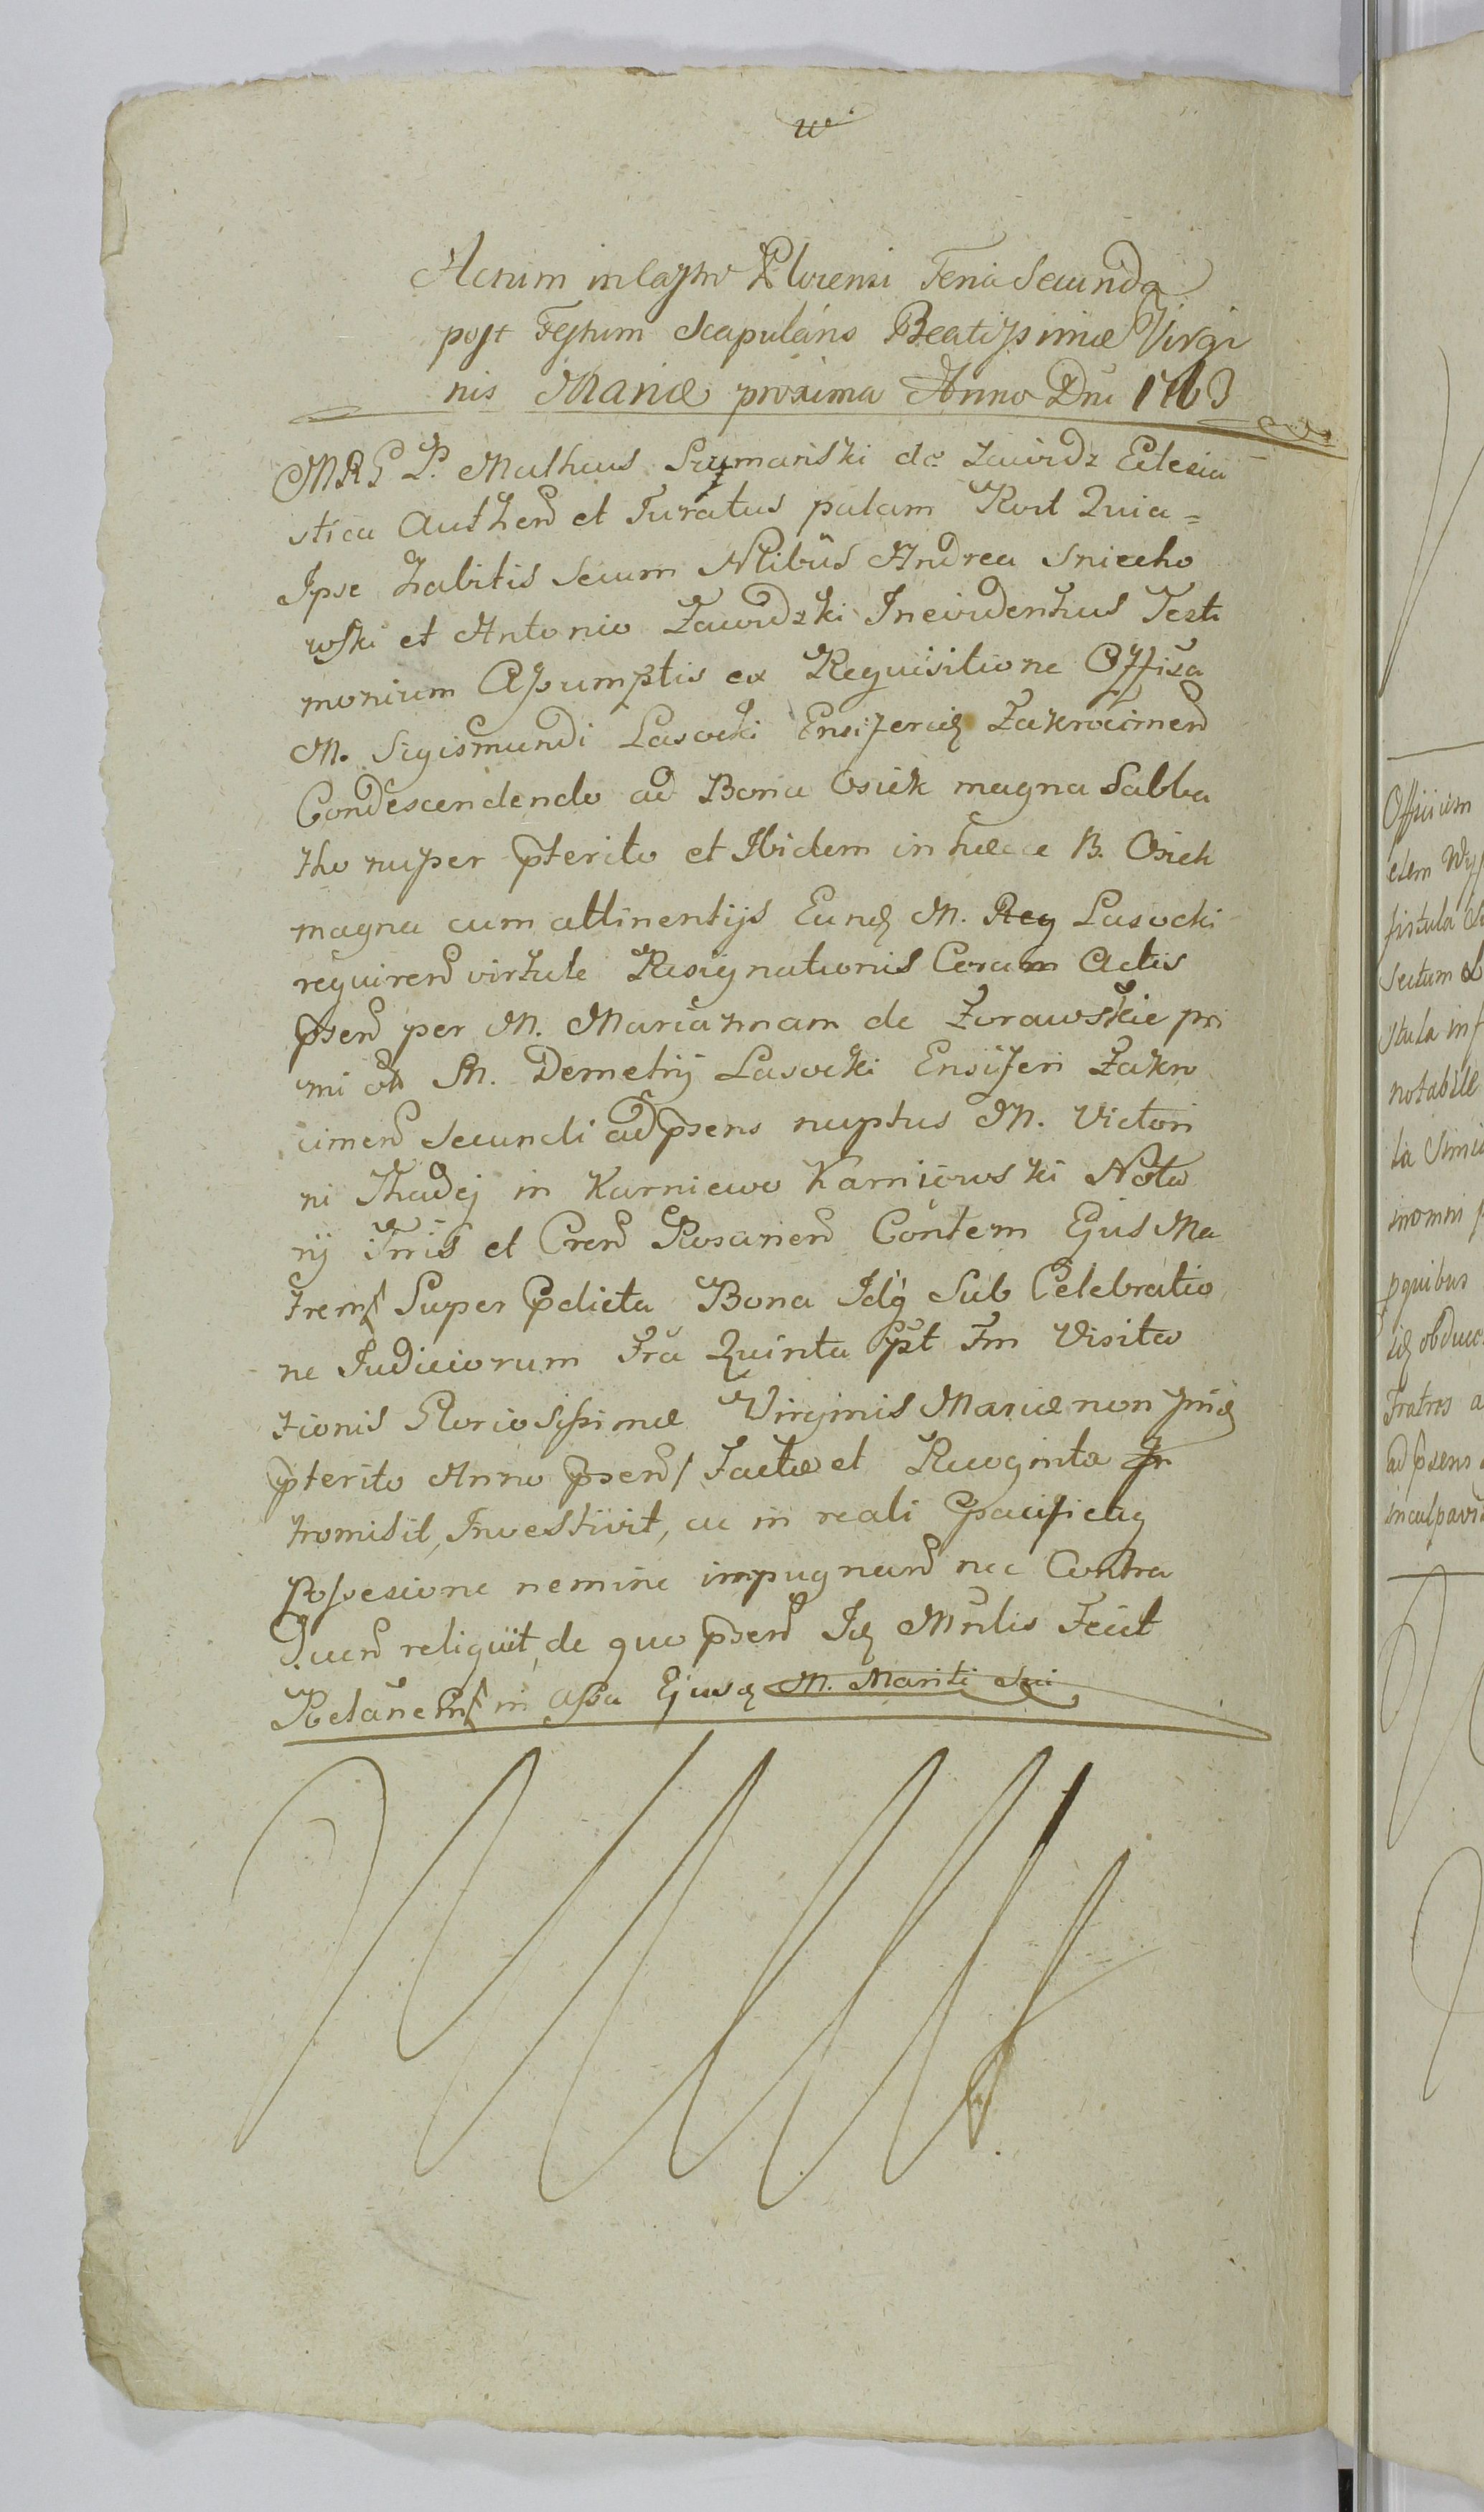 Actum in Castro Plocensi Feria Secunda
post Festum Scapularis Beatissimæ Virgi
nis Mariæ proxima Anno Dni 1763
MRG P. Mathæus Szymański de Zawidz Eclesia
stica Authen et Juratus palam Rvit Quia =
Ipse habitis Secum Nlibus Andrea Sniecho
wski et Antonio Zawidzki In evidentius Testi
monium Assumptis ex Requisitione Offisa
M. Sigismundi Lasocki Ensiferid Zakrocimen
Condescendendo ad Bona Osiek magna Sabba
tho nuper pterito et Ibidem in hæcce B. Osiek
magna cum attinentijs Eund M. Reg Lasocki
requiren virtute Resignationis Coram Actis
psen per M. Mariannam de Zorawskie pri
mi ol M. Demetrij Lasocki Ensiferi Zakro
cimen Secundi ad psens nuptus M. Victori
ni Thadej in Karniewo Karniewski Nota
rij Tris et Cren Rosanen Contem Ejus Ma
trem Super pdicta Bona Idq Sub Celebratio
ne Judiciorum Fra Quinta pt Fm Visita
tionis Gloriosissimæ Virginis Mariæ non
pterito Anno psen / Factæ et Recognitæ In
tromisit, Investivit, ac in reali pacificaq
Possesione nemine impugnan nec Contra
Dicen reliquit, de quo psen Id Mnlis Fecit
Relānem in assa Ejusd M. Mariti Sui
Officium
notabile
in omni
pquibus
Fratres
ad psens